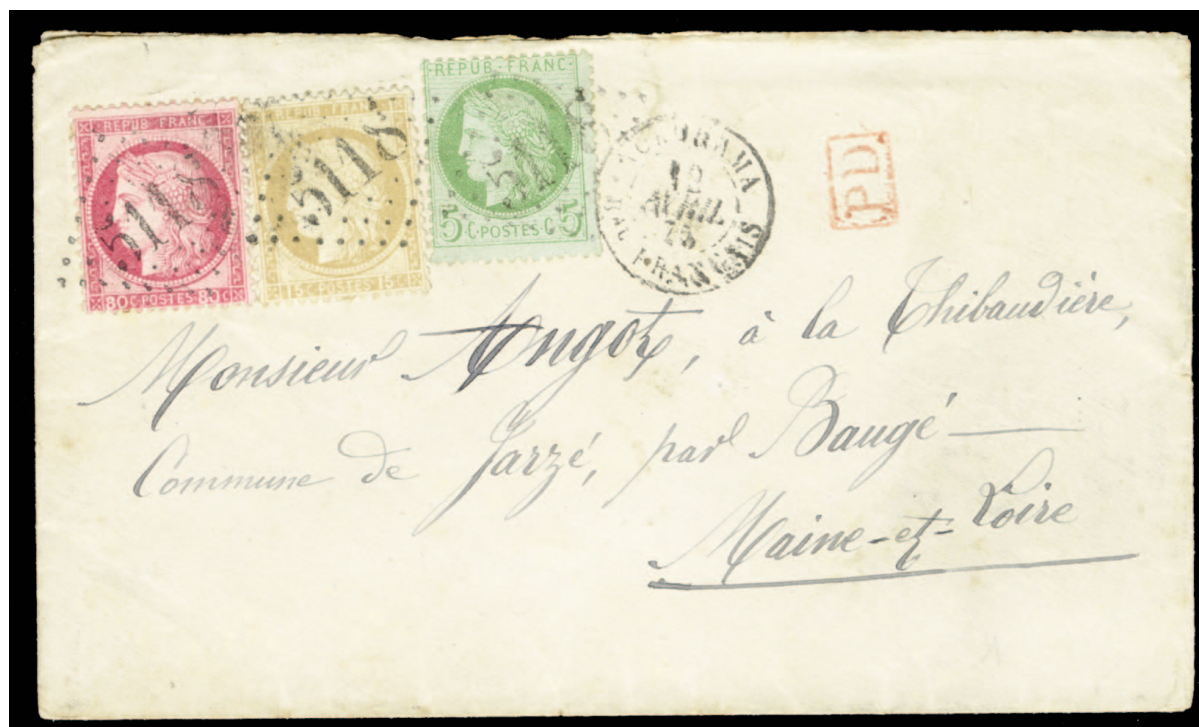 REPUB·FRANC·
5118
80 C·POSTES·80
REPUB·FRANC·
5118
15 C·POSTES·15
REPUB·FRANC·
511
5 C·POSTES·C 5
YOKOHAMA
AVRIL
75
FRANCAIS
PD
Monsieur Angot, à la Thibaudière,
Commune de Jarzé, par Baugé
Maine-et-Loire